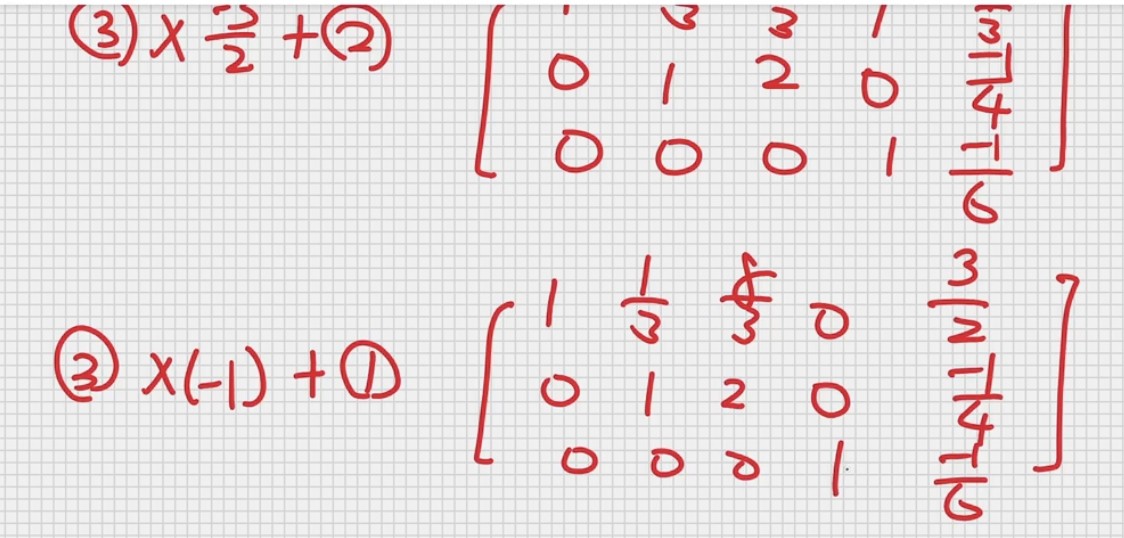 ③ × -3/2 + ② [ 1 1/3 5/3 1 4/3
0 1 2 0 -1/4
0 0 0 1 -1/6 ]
③ ×(-1) + ① [ 1 1/3 5/3 0 3/2
0 1 2 0 -1/4
0 0 0 1 -1/6 ]